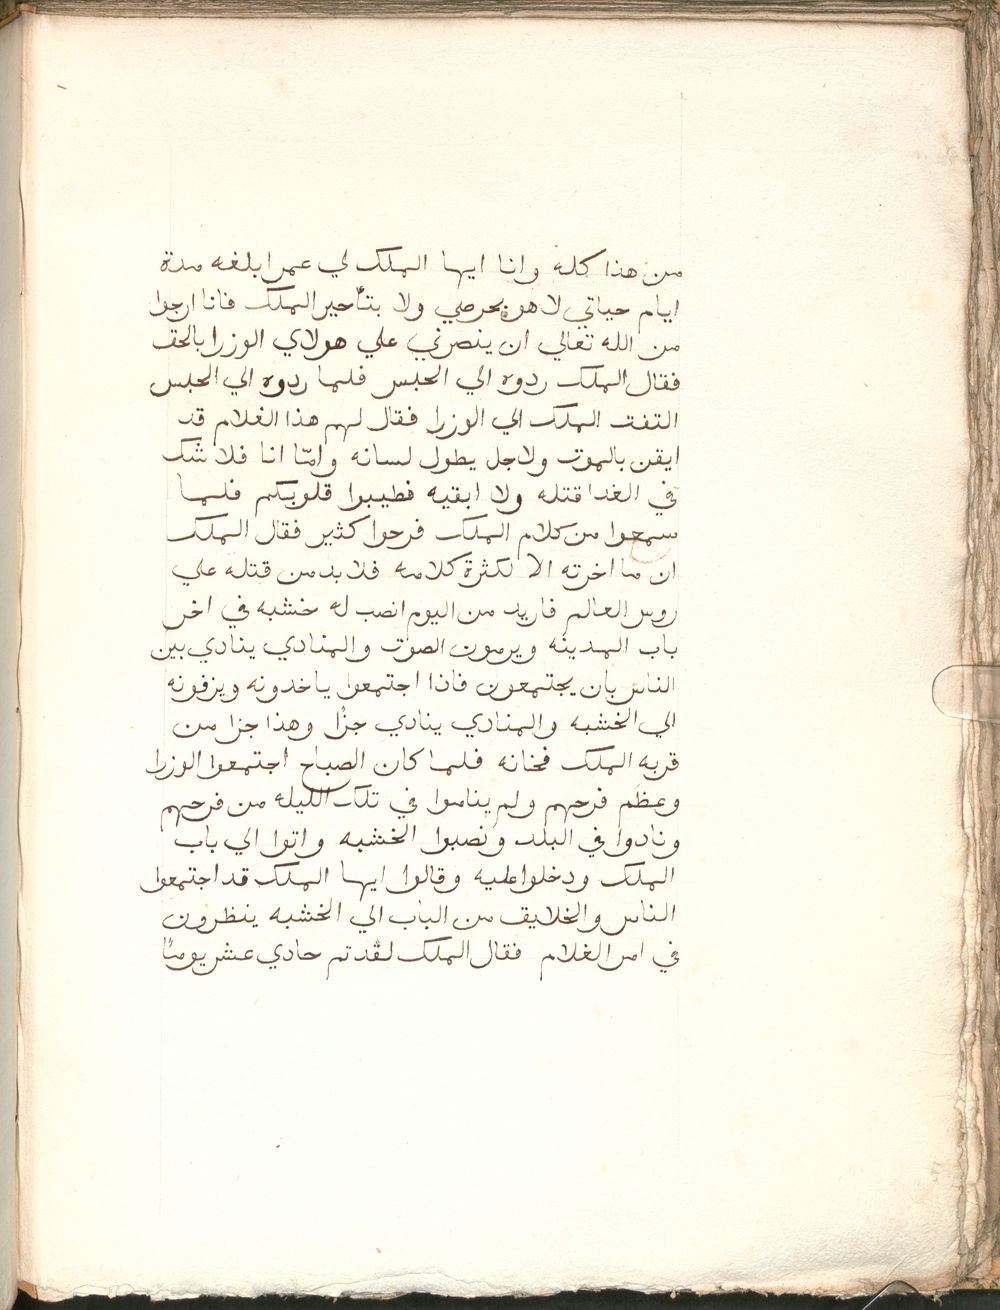 من هذا كله وانا ايها الملك لي عمر ابلغه مدة
ايام حياتي لا هو بحرصي ولا بتأخير الملك فانا ارجوا
من الله تعالي ان ينصرني علي هولاي الوزرا بالحق
فقال الملك ردوه الي الحبس فلما ردوه الي الحبس
التفت الملك الي الوزرا فقال لهم هذا الغلام قد
ايقن بالموت ولاجل يطول لسانه وامّا انا فلا شك
في الغد اقتله ولا ابقيه فطيبوا قلوبكم فلما
سمعوا من كلام الملك فرحوا كثير فقال الملك
ان ما اخرته الا لكثرة كلامه فلا بد من قتله علي
روس العالم فاريد من اليوم انصب له خشبه في اخر
باب المدينه ويرمون الصوت والمنادي ينادي بين
الناس بان يجتمعون فاذا اجتمعوا ياخدونه ويزفونه
الي الخشبه والمنادي ينادي جزا وهذا جزا من
قربه الملك فخانه فلما كان الصباح اجتمعوا الوزرا
وعظم فرحهم ولم يناموا في تلك الليله من فرحهم
ونادوا في البلد ونصبوا الخشبه واتوا الي باب
الملك ودخلوا عليه وقالوا ايها الملك قد اجتمعوا
الناس والخلايق من الباب الي الخشبه ينظرون
في امر الغلام فقال الملك لقد تم حادي عشر يومًا